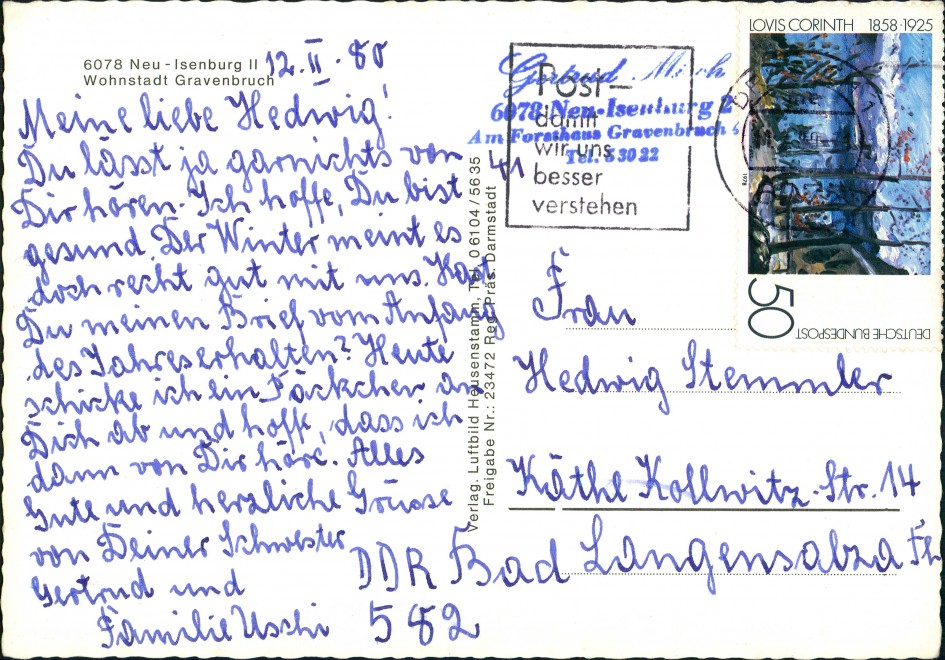 6078 Neu-Isenburg II
Wohnstadt Gravenbruch
12.II.80
Meine liebe Hedwig!
Du lässt ja garnichts von
Dir hören. Ich hoffe, Du bist
gesund. Der Winter meint es
doch recht gut mit uns. Hast
Du meinen Brief vom Anfang
des Jahres erhalten? Heute
schicke ich ein Päckchen an
Dich ab und hoffe, dass ich
dann von Dir höre. Alles
Gute und herzliche Grüsse
von Deiner Schwester
Gertrud und
Familie Uschi
Verlag. Luftbild Heusenstamm, Tel. 06104/5635
Freigabe Nr.: 23472 Reg. Präs. Darmstadt
Gertrud
6078 Neu-Isenburg 2
Am Forsthaus Gravenbruch
Tel. 5 30 22
41
Post-
damit
wir uns
besser
verstehen
LOVIS CORINTH 1858-1925
1978
50
DEUTSCHE BUNDESPOST
Frau
Hedwig Stemmler
Käthe Kollwitz-Str. 14
DDR Bad Langensalza
582